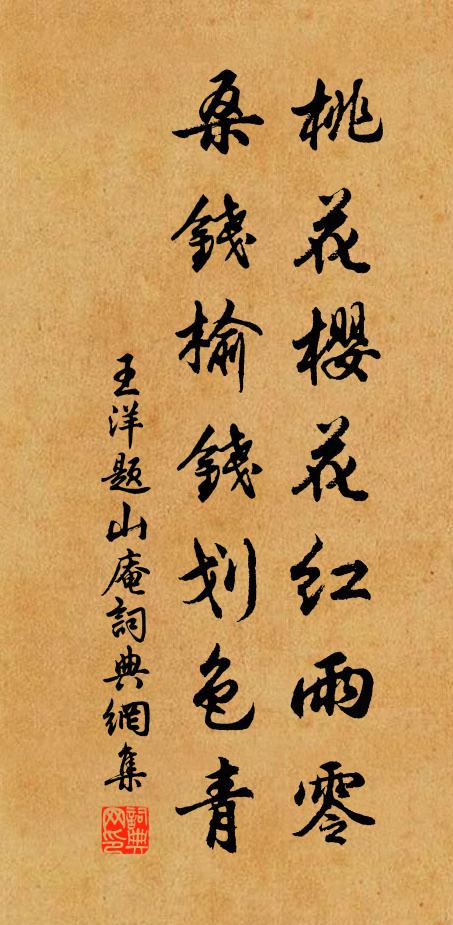 桃花櫻花红雨零
桑錢榆錢划色青
王洋题山庵詞典網集
詞典网印